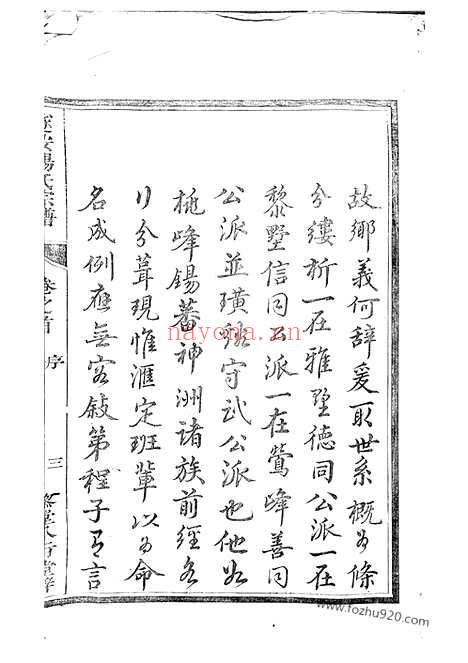 故鄉義何辭爰取世系概為條
分縷析一在雅墅德同公派一在
黎墅信同公派一在鶯峰善同
公派並璜 守武公派也他如
桃峰錫蕃神洲諸族前經各
行分葺現惟滙定班輩以為命
名成例應無容敍第程子有言
楊氏宗譜
卷之首
序
三
nayona.cn
www.fozhu920.com